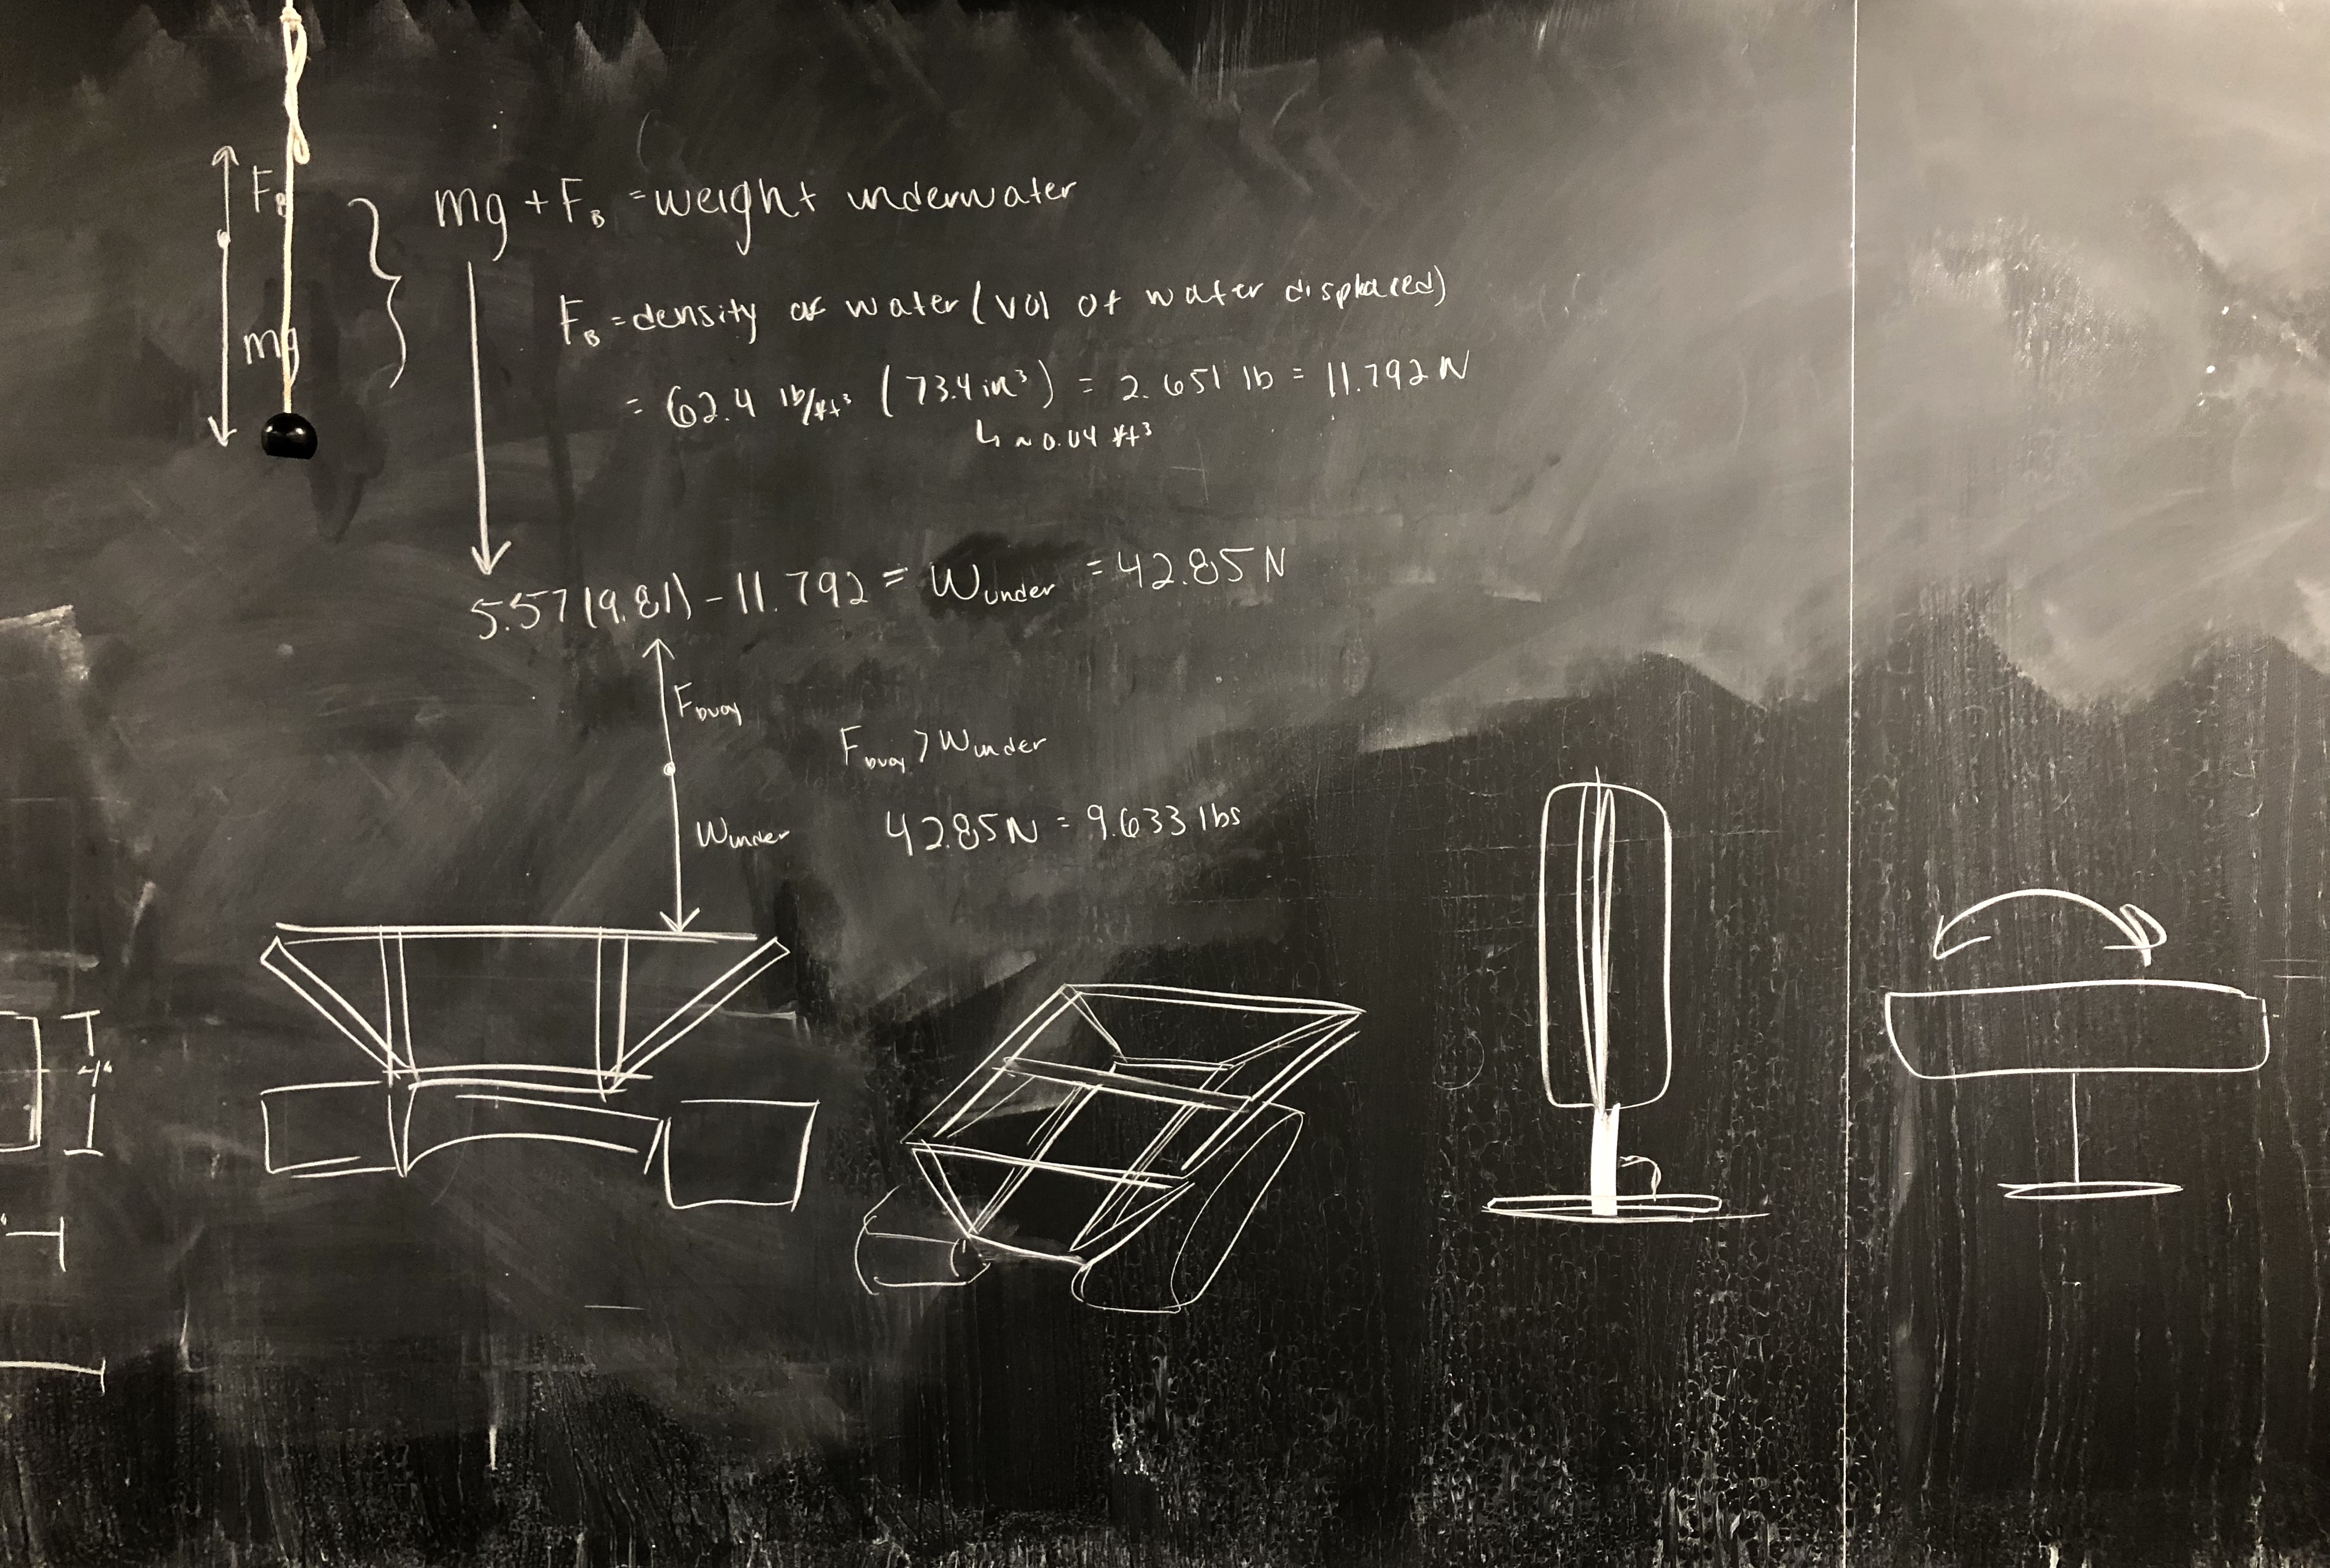 F_B
mg
mg + F_B = weight underwater
F_B = density of water (vol of water displaced)
= 62.4 lb/ft³ (73.4 in³) = 2.651 lb = 11.792 N
↳ ~ 0.04 ft³
5.57(9.81) - 11.792 = W_under = 42.85 N
F_buoy
F_buoy > W_under
W_under
42.85 N = 9.633 lbs
4"